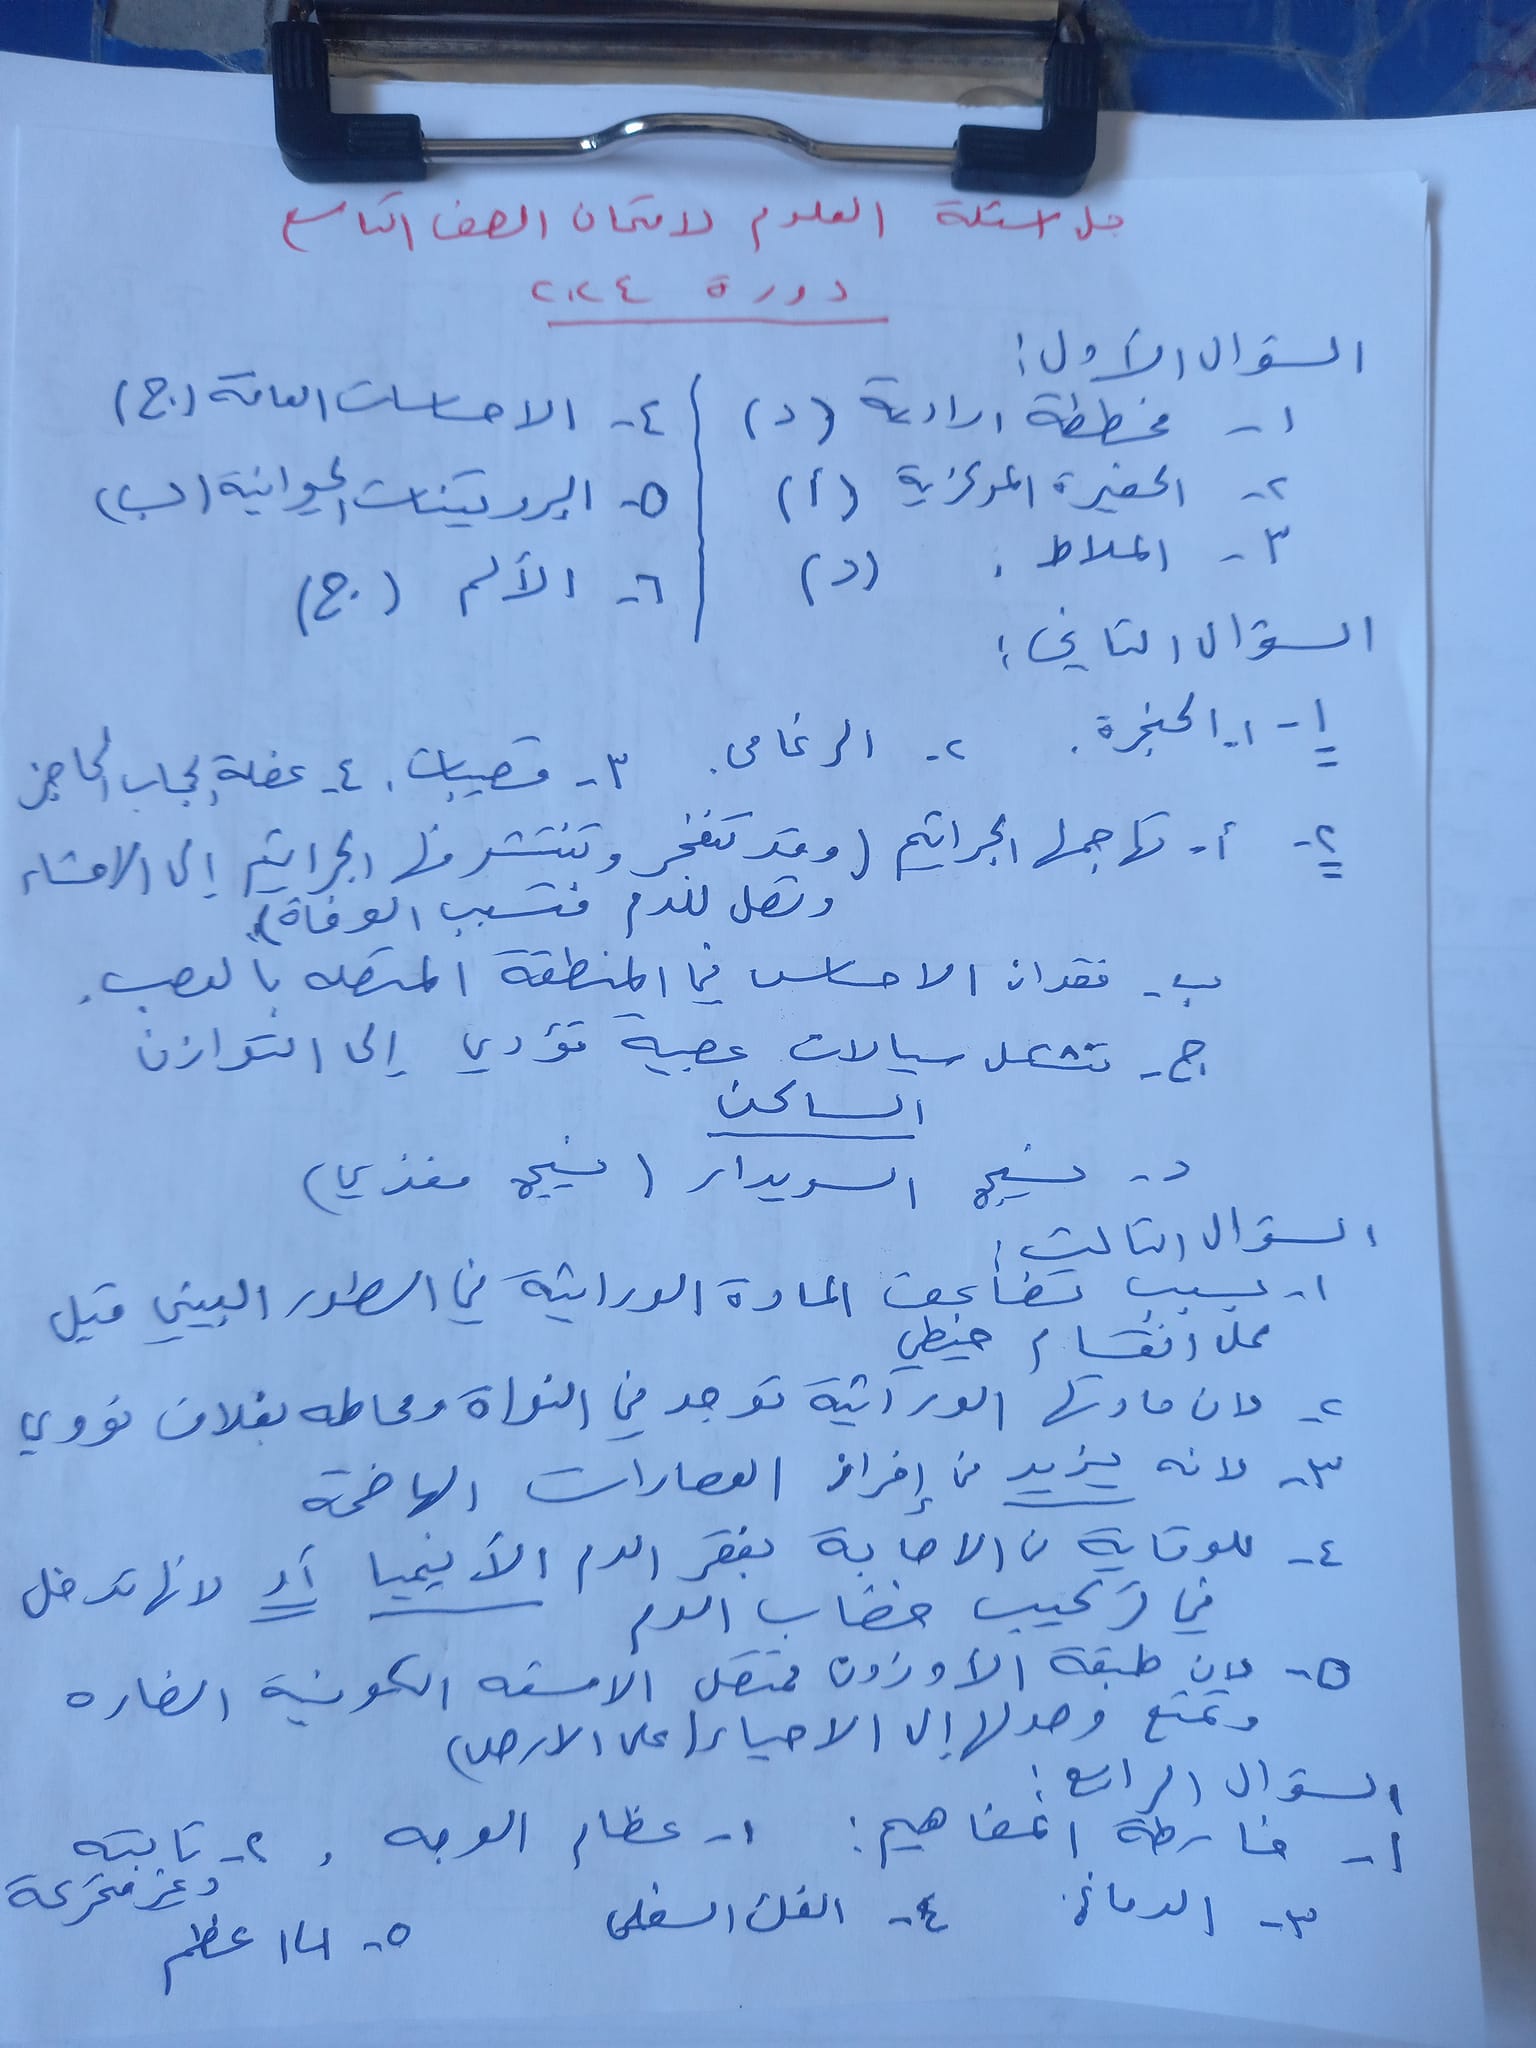 حل اسئلة العلوم لامتحان الصف التاسع
دورة ٢٠٢٤
السؤال الأول:
١- مخططة ارادية (د)
٢- الحفيرة المركزية (أ)
٣- الملاط. (د)
٤- الاحساسات العامة (ج)
٥- البروتينات الحيوانية (ب)
٦- الألم (ج)
السؤال الثاني:
١- ١- الحنجرة. ٢- الرغامى. ٣- قصيبات. ٤- عضلة الحجاب الحاجز
٢- أ- تهاجمها الجراثيم (وقد تنفجر وتنتشر منها الجراثيم إلى الامعاء
وتصل للدم فتسبب الوفاة).
ب- فقدان الاحساس في المنطقة المتصله بالعصب.
ج- تتشكل سيالات عصبية تؤدي إلى التوازن
الساكن
د- نسيج السويداء (نسيج مغذي)
السؤال الثالث:
١- بسبب تضاعف المادة الوراثية في الطور البيني قبل
كل انقسام خيطي
٢- لان مادتها الوراثية توجد في النواة ومحاطه بغلاف نووي
٣- لانه يزيد من إفراز العصارات الهاضمة
٤- للوقاية من الاصابة بفقر الدم الأنيميا أو لانها تدخل
في تركيب خضاب الدم
٥- لان طبقة الأوزون تمتص الاشعه الكونية الضاره
وتمنع وصولها إلى الاحياء (على الارض)
السؤال الرابع:
١- خارطة المفاهيم: ١- عظام الوجه. ٢- ثابته
وغير متحركة
٣- الدماغ. ٤- الفك السفلي ٥- ١٤ عظم